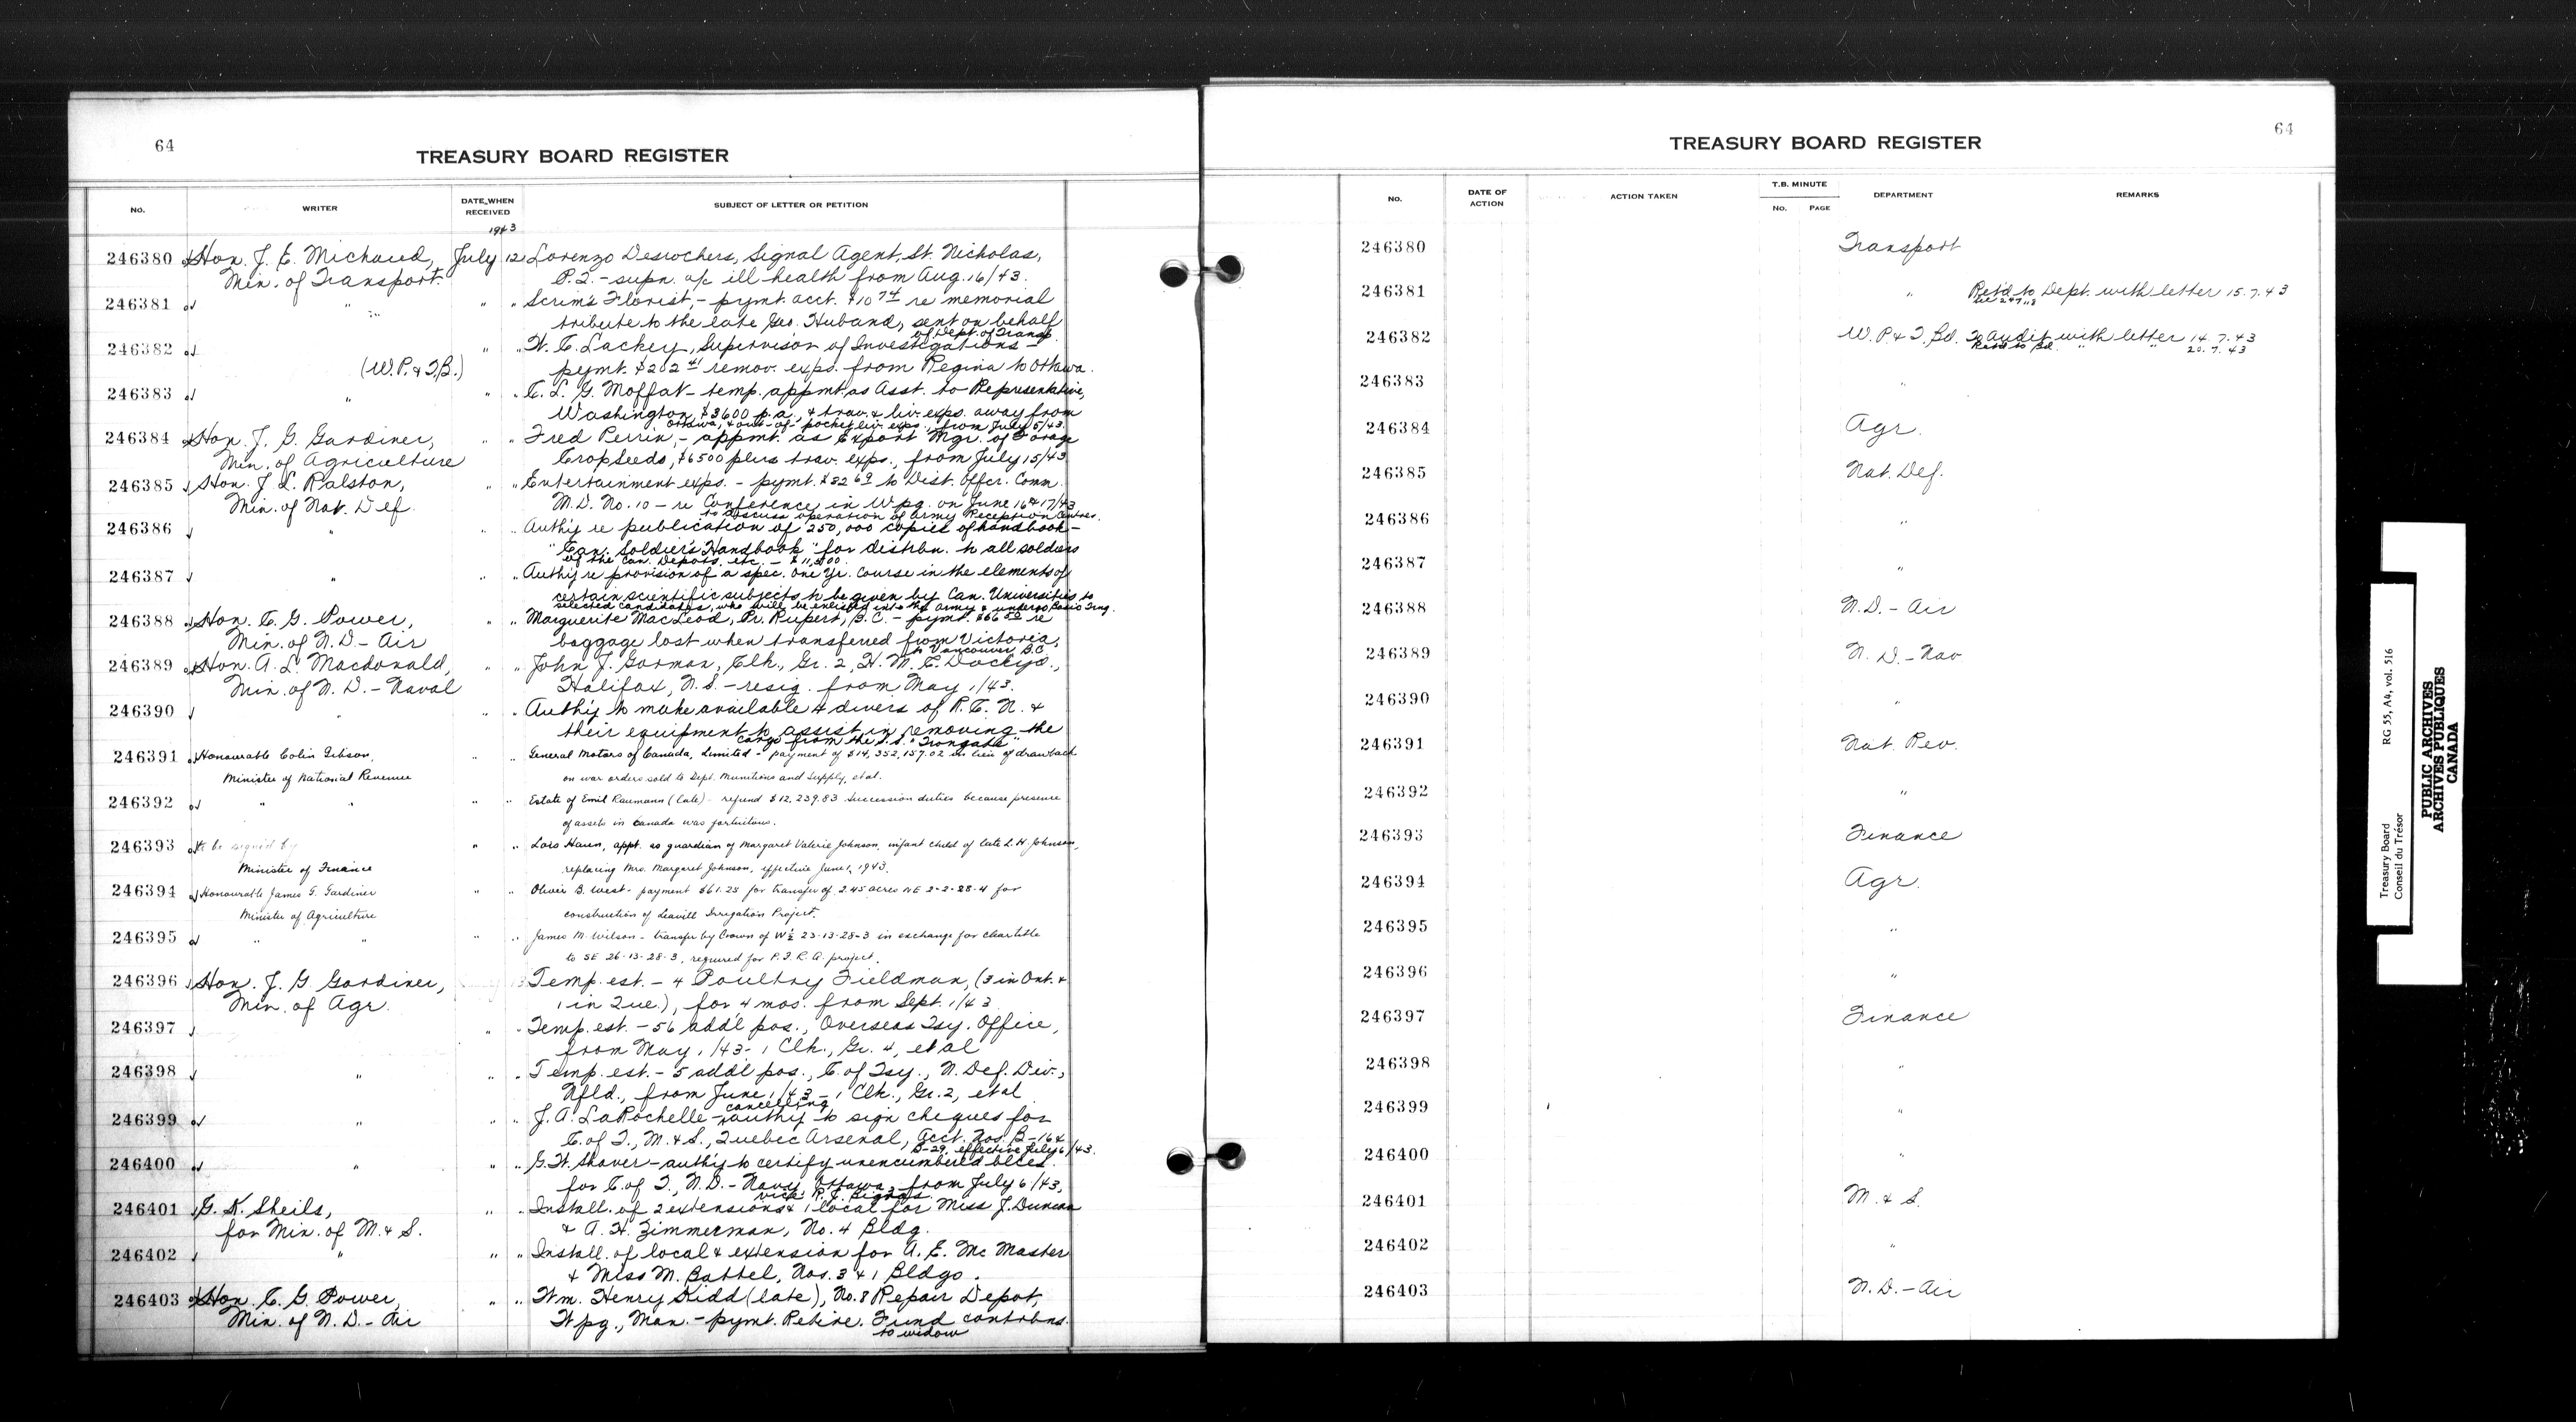 64
TREASURY BOARD REGISTER
No. WRITER DATE WHEN RECEIVED SUBJECT OF LETTER OR PETITION
1943
246380 Hon. J. E. Michaud, July 12 Lorenzo Desrochers, Signal Agent, St. Nicholas,
Min. of Transport. P.Q. - supn. a/c ill health from Aug. 16/43.
246381 " " " Scrim's Florist, - pymt. acct. $10 74 re memorial
tribute to the late Geo. Huband, sent on behalf
of Dept. of Transp.
246382 " " W. C. Lackey, Supervisor of Investigations -
(W.P. & T.B.) pymt. $202 41 remov. exps. from Regina to Ottawa.
246383 " " " C. L. G. Moffat - temp. appmt. as Asst. to Representative,
Washington, $3600 p.a., & trav. & liv. exps. away from
Ottawa, & out-of-pocket liv. exps., from July 5/43.
246384 Hon. J. G. Gardiner, " " Fred Perrin, - appmt. as Export Mgr. of Forage
Min. of Agriculture Crop Seeds, $6500 plus trav. exps., from July 15/43
246385 Hon. J. L. Ralston, " " Entertainment exps. - pymt. $32 69 to Dist. Offcr. Comm.
Min. of Nat. Def. M.D. No. 10 - re Conference in Wpg. on June 16 & 17/43
to discuss operation of Army Reception Centres.
246386 " " " Auth'y re publication of 250,000 copies of handbook -
"Can. Soldier's Handbook" for distribn. to all soldiers
of the Can. Depots, etc. -
246387 " " " Auth'y re provision of a spec. one yr. course in the elements of
certain scientific subjects to be given by Can. Universities to
selected candidates, who will be enlisted into the army & undergo Basic Trng.
246388 Hon. C. G. Power, " " Marguerite MacLeod, Pr. Rupert, B.C. - pymt. $66 50 re
Min. of N.D. - Air baggage lost when transferred from Victoria,
to Vancouver B.C.
246389 Hon. A. L. Macdonald, " " John J. Gorman, Clk., Gr. 2, H.M.C. Dockyd.,
Min. of N.D. - Naval Halifax, N.S. - resig. from May 1/43.
246390 " " " Auth'y to make available 4 divers of R.C.N. &
their equipment to assist in removing the
cargo from the S.S. "Irongate"
246391 Honourable Colin Gibson, " " General Motors of Canada, Limited - payment of $14,352,157.02 in lieu of drawback
Minister of National Revenue on war orders sold to Dept. Munitions and Supply, et al.
246392 " " " " Estate of Emil Raumann (late) - refund $12,239.83 succession duties because presence
of assets in Canada was fortuitous.
246393 to be signed by " " Lois Haun, appt. as guardian of Margaret Valerie Johnson, infant child of late L. H. Johnson,
Minister of Finance replacing Mrs. Margaret Johnson, effective June 1, 1943.
246394 Honourable James G. Gardiner " " Oliver B. West - payment $61.25 for transfer of 2.45 acres NE 2-2-28-4 for
Minister of Agriculture construction of Leavitt Irrigation Project.
246395 " " " " James M. Wilson - transfer by Crown of W½ 23-13-28-3 in exchange for clear title
to SE 26-13-28-3, required for P.F.R.A. project.
246396 Hon. J. G. Gardiner, 13 Temp. est. - 4 Poultry Fieldman, (3 in Ont. &
Min. of Agr. 1 in Que.), for 4 mos. from Sept. 1/43
246397 " " Temp. est. - 56 add'l pos., Overseas Tsy. Office,
from May 1/43 - 1 Clk., Gr. 4, et al
246398 " " " Temp. est. - 5 add'l pos., C. of Tsy., N. Def. Div.,
Nfld., from June 1/43 - 1 Clk., Gr. 2, et al
246399 " " " J. A. LaRochelle - cancelling auth'y to sign cheques for
C. of T., M. & S., Quebec Arsenal, Acct. Nos. B-16 &
B-29, effective July 6/43.
246400 " " " G. W. Shaver - auth'y to certify unencumbered blces.
for C. of T., N.D. - Navy, Ottawa, from July 6/43,
vice R. J.
246401 G. K. Sheils, " " Install. of 2 extensions & 1 local for Miss J. Duncan
for Min. of M. & S. & A. H. Zimmerman, No. 4 Bldg.
246402 " " " Install. of local & extension for A. E. McMaster
& Miss M. Battel, Nos. 3 & 1 Bldgs.
246403 Hon. C. G. Power, " " Wm. Henry Kidd (late), No. 8 Repair Depot,
Min. of N.D. - Air Wpg., Man. - pymt. Retire. Fund contribns.
to widow
64
TREASURY BOARD REGISTER
No. DATE OF ACTION ACTION TAKEN T.B. MINUTE No. PAGE DEPARTMENT REMARKS
246380 Transport
246381 " Ret'd to Dept. with letter 15.7.43
246382 W.P. & T. Bd. To Audit with letter 14.7.43
Ret'd to Bd. " " 20.7.43
246383 "
246384 Agr.
246385 Nat. Def.
246386 "
246387 "
246388 N.D. - Air
246389 N.D. - Nav
246390 "
246391 Nat. Rev.
246392 "
246393 Finance
246394 Agr.
246395 "
246396 "
246397 Finance
246398 "
246399 "
246400 "
246401 M. & S.
246402 "
246403 N.D. - Air
Treasury Board RG 55, A4, vol. 516
Conseil du Trésor
PUBLIC ARCHIVES
ARCHIVES PUBLIQUES
CANADA